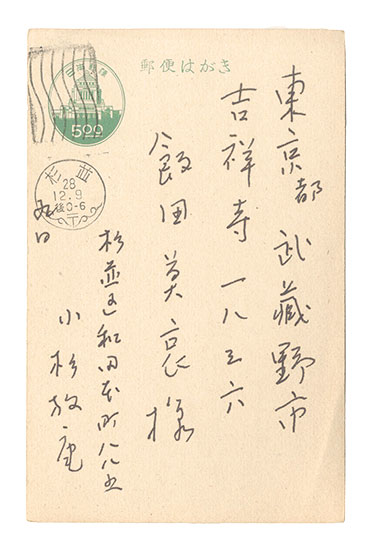 郵便はがき
日本郵便
500
杉並
28
12.9
後0-6
東京都 武蔵野市
吉祥寺 一八三六
飯田莫哀様
九日
杉並区和田本町八八五
小杉放庵